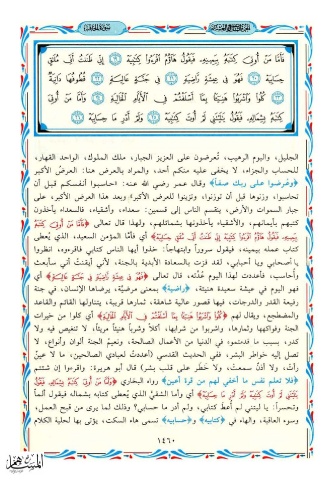 فَأَمَّا مَنْ أُوتِيَ كِتَابَهُ بِيَمِينِهِ فَيَقُولُ هَاؤُمُ اقْرَءُوا كِتَابِيَهْ ﴿١٩﴾ إِنِّي ظَنَنْتُ أَنِّي مُلَاقٍ
حِسَابِيَهْ ﴿٢٠﴾ فَهُوَ فِي عِيشَةٍ رَاضِيَةٍ ﴿٢١﴾ فِي جَنَّةٍ عَالِيَةٍ ﴿٢٢﴾ قُطُوفُهَا دَانِيَةٌ
﴿٢٣﴾ كُلُوا وَاشْرَبُوا هَنِيئًا بِمَا أَسْلَفْتُمْ فِي الْأَيَّامِ الْخَالِيَةِ ﴿٢٤﴾ وَأَمَّا مَنْ أُوتِيَ
كِتَابَهُ بِشِمَالِهِ فَيَقُولُ يَا لَيْتَنِي لَمْ أُوتَ كِتَابِيَهْ ﴿٢٥﴾ وَلَمْ أَدْرِ مَا حِسَابِيَهْ ﴿٢٦﴾
الجليل، واليوم الرهيب، تُعرضون على العزيز الجبار، ملك الملوك، الواحد القهار،
للحساب والجزاء، لا يخفى عليه منكم أحد، والمراد بالعرض هنا: العرضُ الأكبر
﴿وعُرضوا على ربك صفاً﴾ وقال عمر رضي الله عنه: (حاسبوا أنفسكم قبل أن
تُحاسبوا، وزنوها قبل أن توزنوا، وتزينوا للعرض الأكبر) وبعد هذا العرض الأكبر، على
جبار السموات والأرض، ينقسم الناس إلى قسمين: سعداء، وأشقياء، فالسعداء يأخذون
كتبهم بأيمانهم، والأشقياء يأخذونها بشمائلهم، ولهذا قال تعالى ﴿فَأَمَّا مَنْ أُوتِيَ كِتَابَهُ
بِيَمِينِهِ، فَيَقُولُ هَاؤُمُ اقْرَءُوا كِتَابِيَهْ إِنِّي ظَنَنْتُ أَنِّي مُلَاقٍ حِسَابِيَهْ﴾ أي فأمَّا المؤمن السعيد، الذي يُعطى
كتاب عمله بيمينه، فيقول سروراً وابتهاجاً: خذوا أيها الناس كتابي فاقرءوه، انظروا
يا أصحابي ويا أحبابي، لقد فزت بالسعادة الأبدية بالجنة، لأني أيقنتُ أني سأبعث
وأحاسب، فأعددت لهذا اليوم عُدَّته، قال تعالى ﴿فَهُوَ فِي عِيشَةٍ رَاضِيَةٍ فِي جَنَّةٍ عَالِيَةٍ﴾ أي
فهو اليوم في عيشة سعيدة هنيئة، ﴿راضية﴾ بمعنى مرضيَّة، يرضاها الإنسان، في جنة
رفيعة القدر والدرجات، فيها قصور عالية شاهقة، ثمارها قريبة، يتناولها القائم والقاعد
والمضطجع، ويقال لهم ﴿كُلُوا وَاشْرَبُوا هَنِيئًا بِمَا أَسْلَفْتُمْ فِي الْأَيَّامِ الْخَالِيَةِ﴾ أي كلوا من خيرات
الجنة وفواكهها وثمارها، واشربوا من شرابها، أكلاً وشرباً هنيئاً مريئاً، لا تنغيص فيه ولا
كدر، بسبب ما قدمتموه في الدنيا من الأعمال الصالحة، ونعيمُ الجنة ألوان وأنواع، لا
تصل إليه خواطر البشر، ففي الحديث القدسي (أعددتُ لعبادي الصالحين، ما لا عينٌ
رأتْ، ولا أذنٌ سمعتْ، ولا خطر على قلب بشر) قال أبو هريرة: واقرءوا إن شئتم
﴿فلا تعلم نفس ما أخفي لهم من قرة أعين﴾ رواه البخاري ﴿وَأَمَّا مَنْ أُوتِيَ كِتَابَهُ بِشِمَالِهِ فَيَقُولُ
يَا لَيْتَنِي لَمْ أُوتَ كِتَابِيَهْ وَلَمْ أَدْرِ مَا حِسَابِيَهْ﴾ أي وأما الشقيُّ الذي يُعطى كتابه بشماله فيقول ألماً
وتحسراً: يا ليتني لم أُعطَ كتابي، ولم أدر ما حسابي؟ وذلك لما يرى من قبيح العمل،
وسوء العاقبة، والهاء في ﴿كتابيه﴾ و﴿حسابيه﴾ تسمى هاء السكت، يؤتى بها لحلية الكلام
١٤٦٠